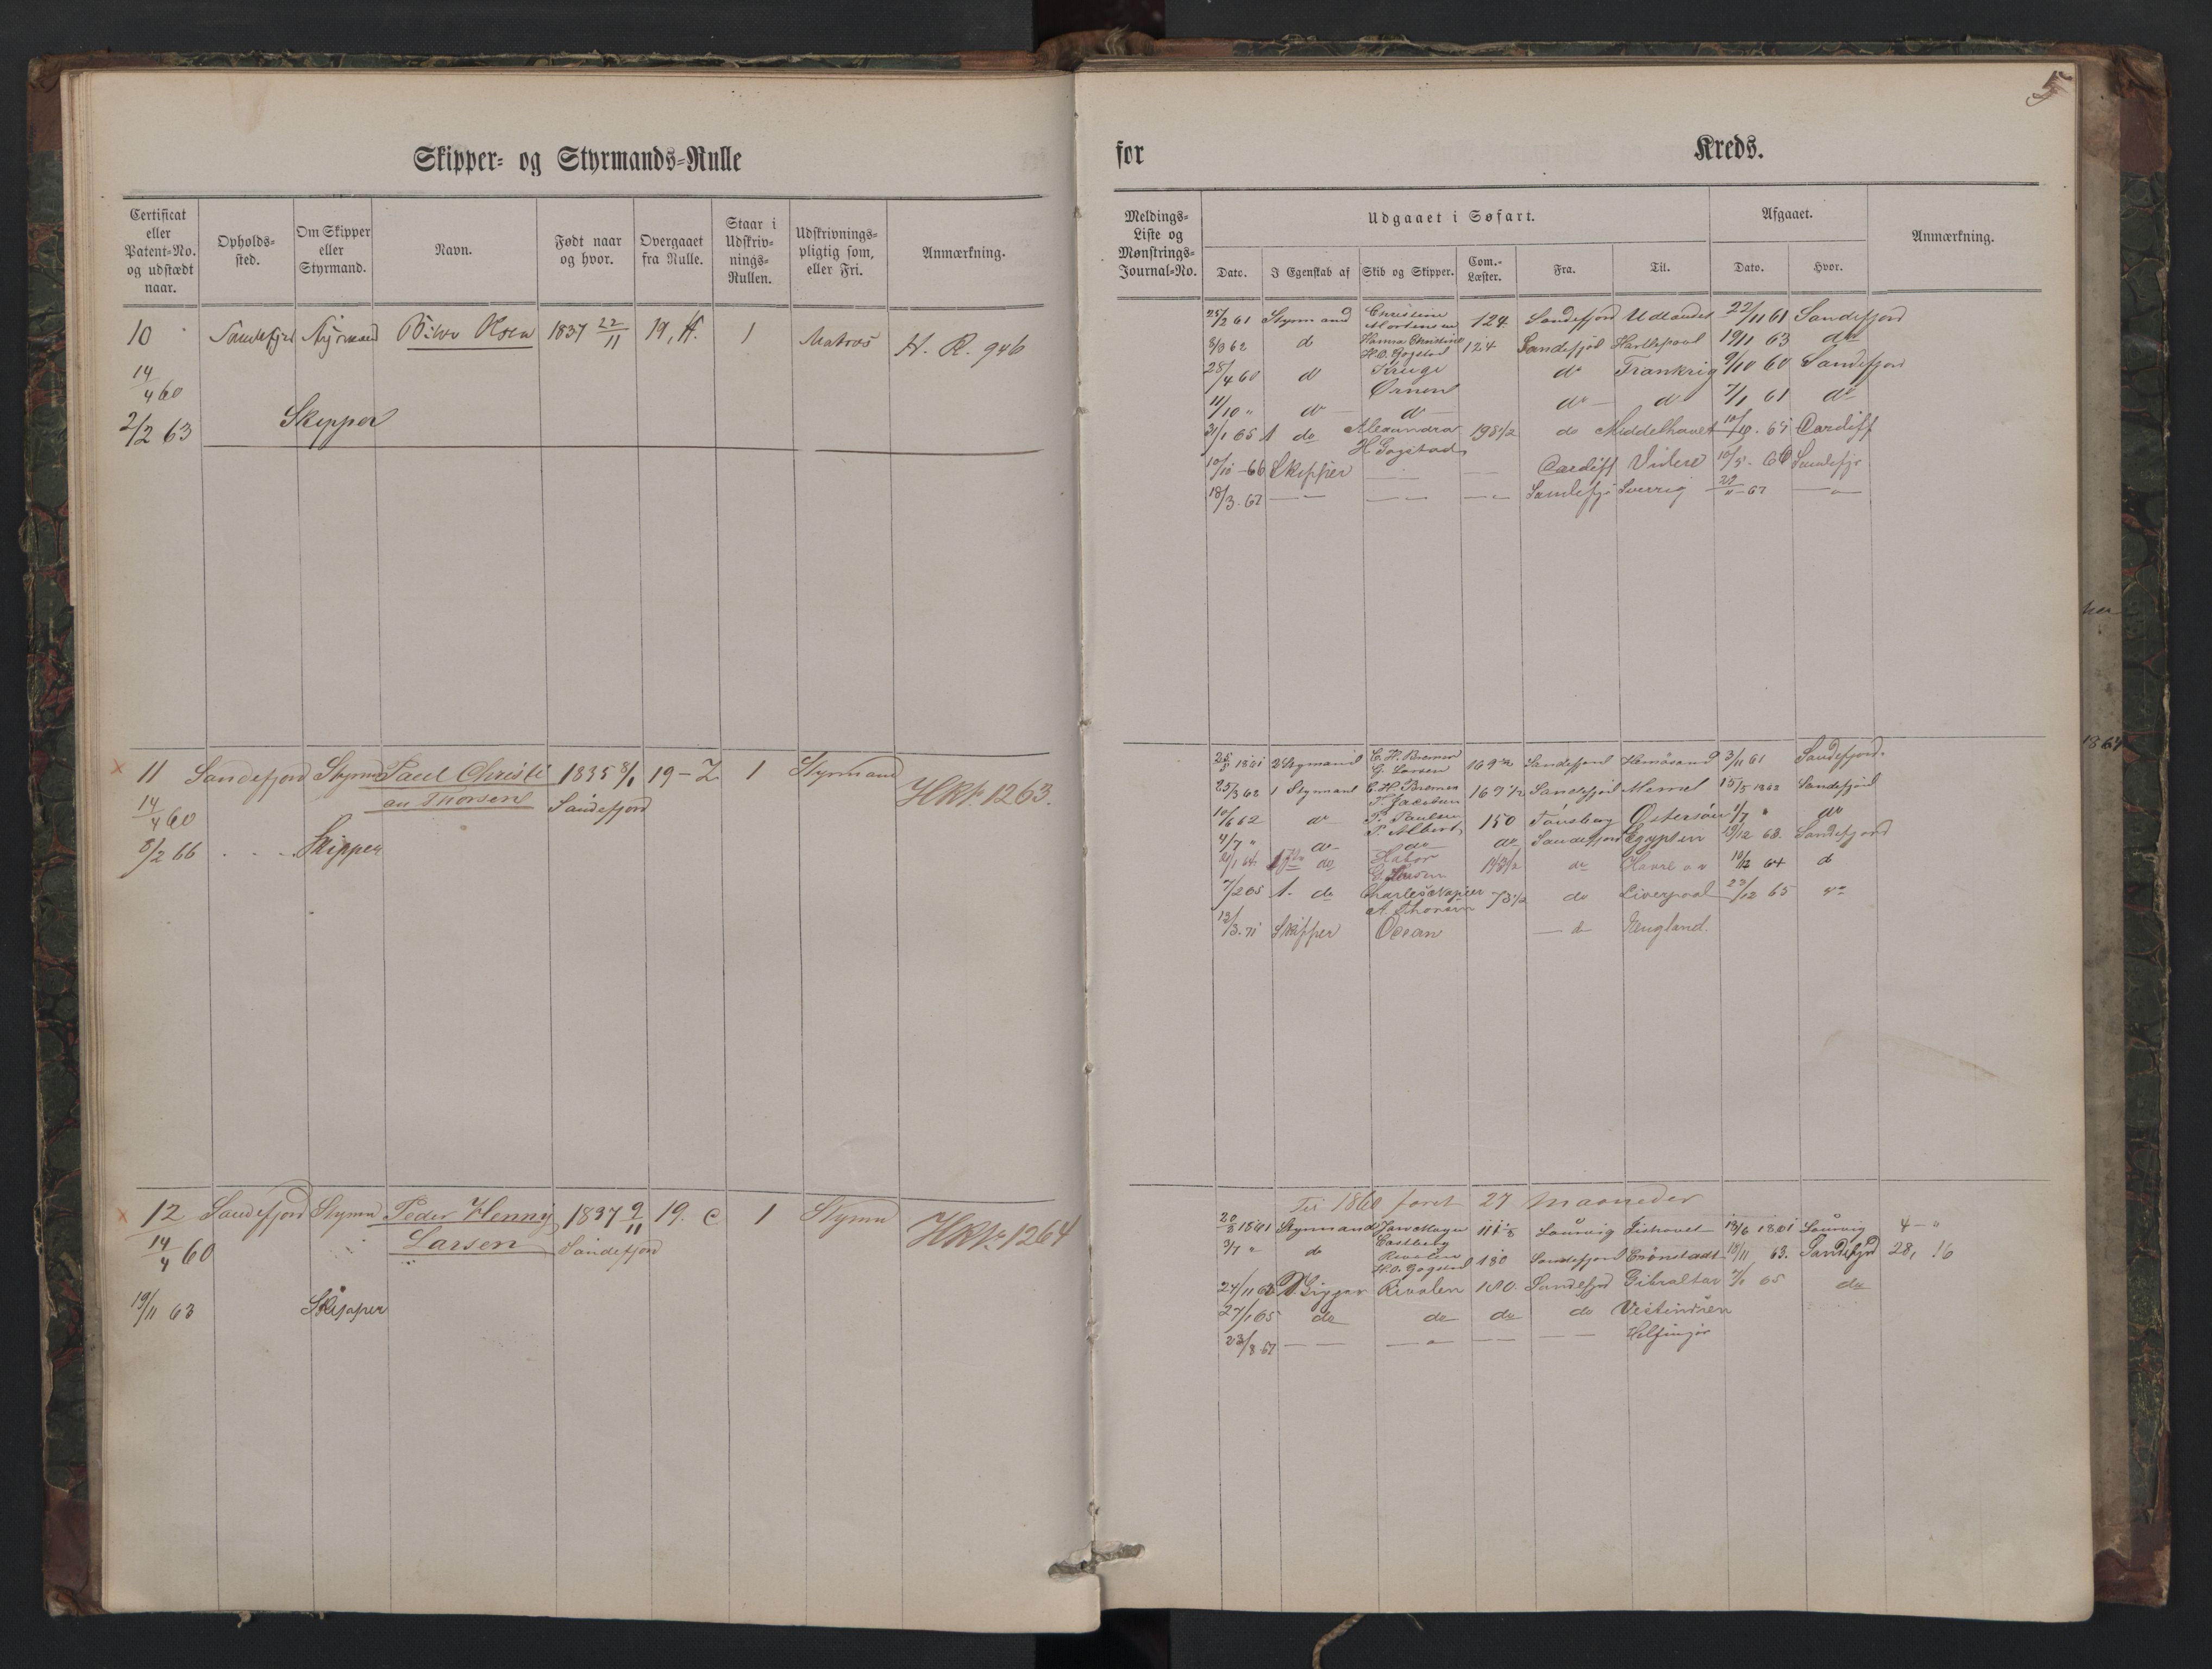 Skipper- og Styrmands-Rulle
Certificat eller Patent-No. og udstædt naar.
Opholds-sted.
Om Skipper eller Styrmand.
Navn.
Født naar og hvor.
Overgaaet fra Rulle.
Staar i Udskriv-nings-Rullen.
Udskrivnings-pligtig som, eller Fri.
Anmærkning.
10 Sandefjord Styrmand Olsen 1837 22/11 19, H. 1 Matros H. R. 946
14/4 60
2/2 63 Skipper
11 Sandefjord Styrm Paul Christi 1835 8/1 19-Z 1 Styrmand HRNr. 1263.
14/4 60 an Thorsen Sandefjord
8/2 66 Skipper
12 Sandefjord Styrm Peder Henny 1837 9/11 19. C 1 Styrm HRNr. 1264
14/4 60 Larsen Sandefjord
19/11 63 Skipper
5
for Kreds.
Meldings-Liste og Mønstrings-Journal-No.
Udgaaet i Søfart.
Afgaaet.
Anmærkning.
Dato. I Egenskab af Skib og Skipper. Com.-Læster. Fra. Til. Dato. Hvor.
25/2 61 Styrmand Christine Mortensen 124 Sandefjord Udlandet 22/11 61 Sandefjord
8/3 62 do Hannas Christine H.O. Gogstad 124 Sandefjod Hartlepool 19/11 63 do
28/4 60 do do Frankrig 9/10 60 Sandefjord
11/10 " do Ørnen do do do 7/1 61 do
31/1 65 1 do Alexandra H Gogstad 198 1/2 do Middelhavet 10/10. 65 Cardiff
10/10-66 Skipper — — Cardiff Videre 10/5. 66 Sandefjr
18/3-67 — — — Sandefjo Sverrig 22/11-67 —
25/3 1861 2 Stymand C.H. Bremer G. Larsen 169 1/2 Sandefjord 3/11 61 Sandefjord.
25/3 62 1 Styrmand C.H. Bremer T. Jacobsen 167 1/2 Sandefjord Memel 15/5 1862 Sandefjord
10/6 62 do P. Paulsen P. Albert 150 Tønsberg Østersøen 1/7 " do
4/7 " do do do Sandefjord Egypten 19/12 63. Sandefjord
do G. Larsen do Havre 10/12 64 d
7/2 65 1. do Charles Napier A. Thorsen 73 1/2 do Liverpool 23/12 65 do
13/3.71 Skipper Ocean — d England.
Til 1860 faret 27 maaneder
20/3 1861 Styrmand Jarn Mayn Castberg Laurvig 13/6 1861 Laurvig 4 — "
3/7 " do Rivalen H.O. Gogstad 180 Sandefjord Crønstadt 19/11 63. Sandefjord 28, 16
24/11 63 Rivalen 180. Sandefjord Gibraltar 7/1 65 do
27/1 65 do do do do Vestindien
23/8.67 — — — — Helsingør
1864